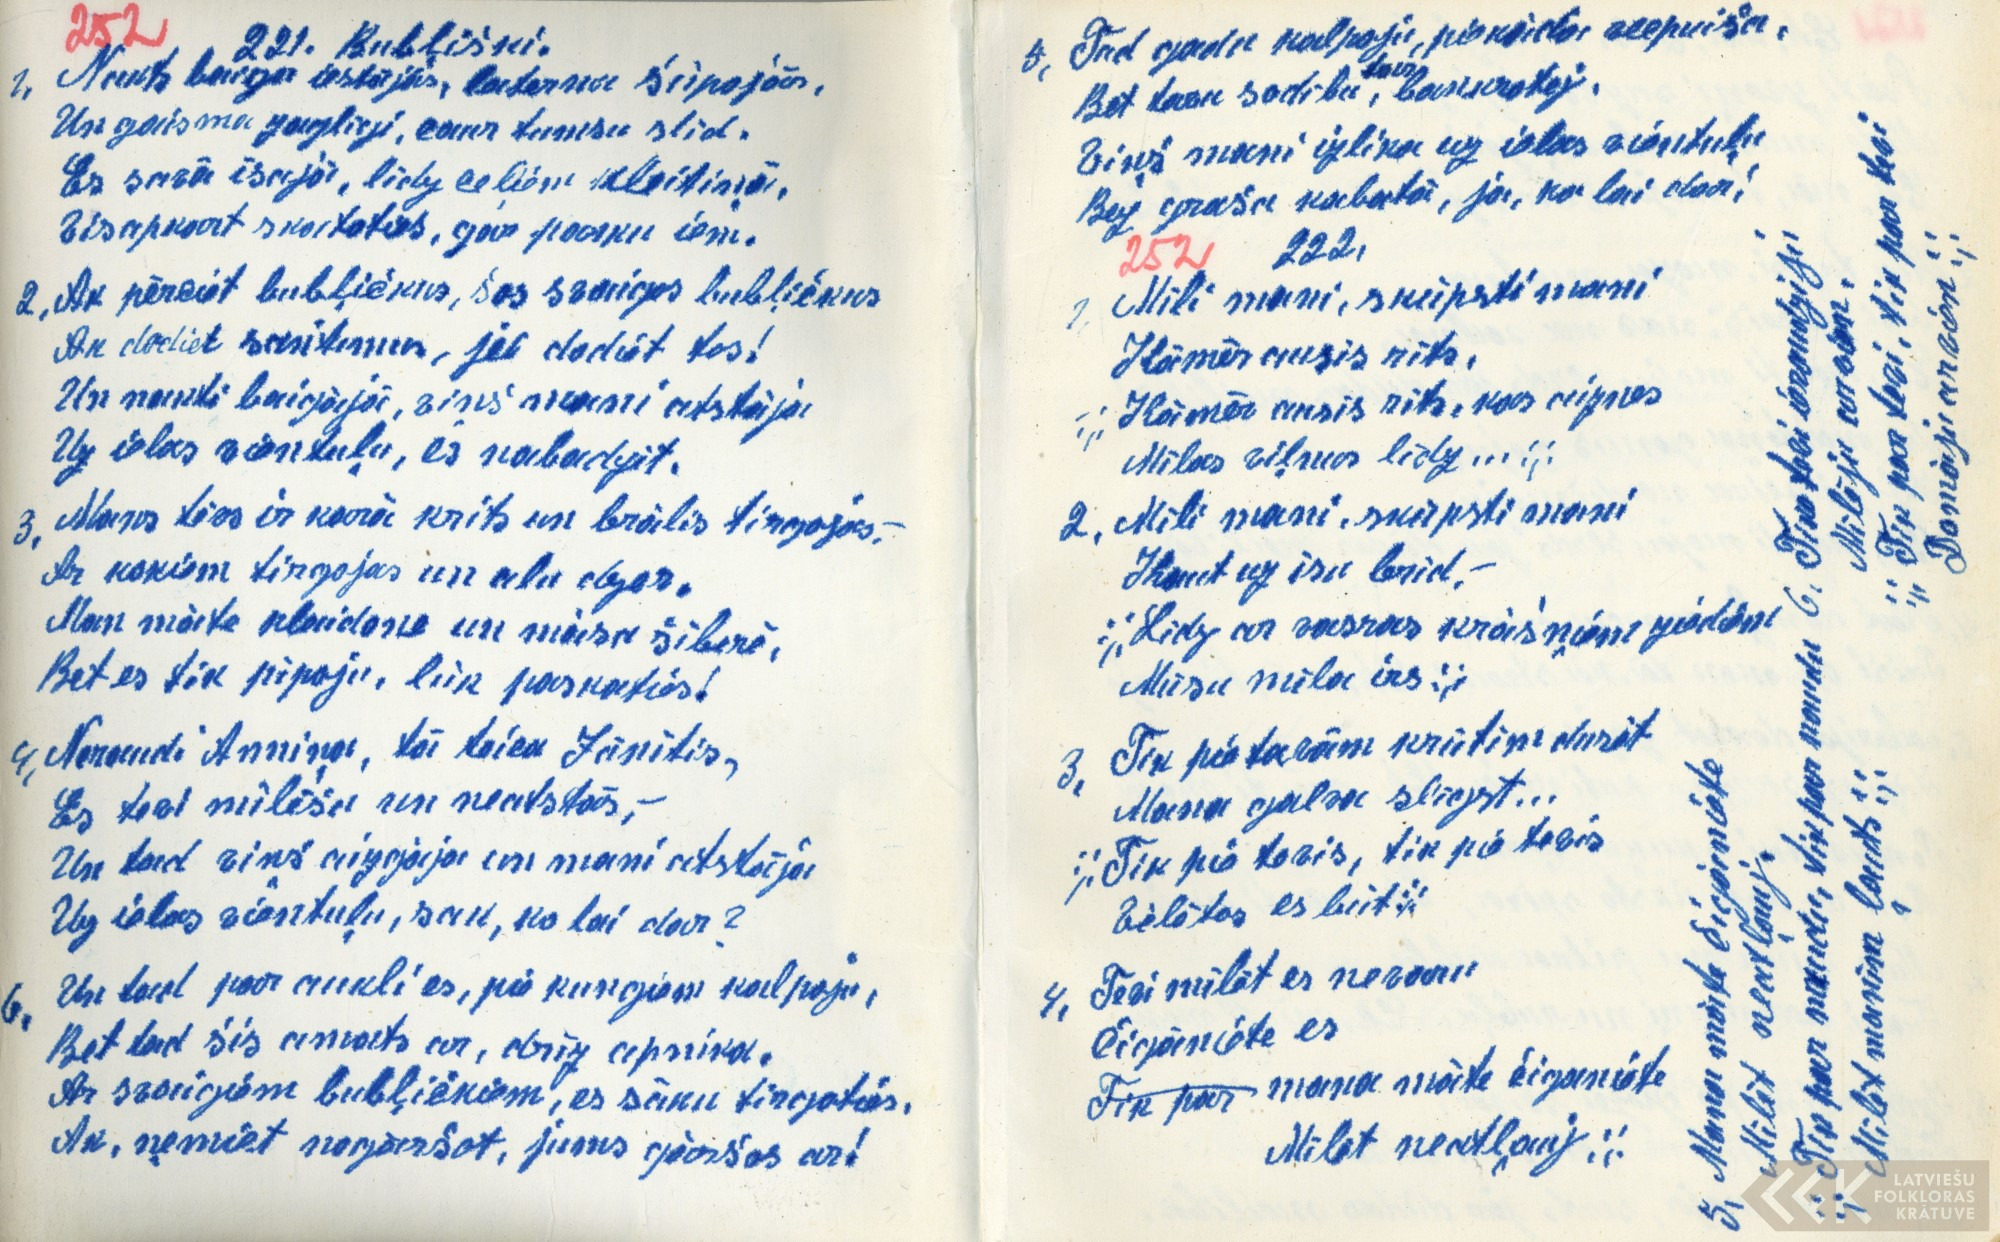 252
221. Bubļiški.
1, Nakts baiga iestājās, laterna šūpojās,
Un gaisma gaglīgi, caur tumsu slīd.
Es savā īsajā, līdz celiem kleitiņā,
Visapkārt skatoties, gar parku iem.
2, Ak pērciet bubļičkus, šos svaigos bubļičkus
Ak dodiet santimus, jel dodiet tos!
Un nakti baigajā, viņš mani atstāja
Uz ielas vientuļu, es nabadzīt.
3, Mans tēvs ir karā krits un brālis tirgojās,-
Ar kokiem tirgojas un alu dzer.
Man māte klaidone un māsa šiberē,
Bet es tik pīpoju, lūk paskatiés!
4, Neraudi Anniņa, tā teica Jānītis,
Es tevi mīlēšu un neatstās,-
Un tad viņš aizgāja un mani atstāja
Uz ielas vientuļu, sak, ko lai dar?
6. Un tad par aukli es, pie kungiem kalpoju,
Bet tad šis amats ar, drīz apnika.
Ar svaigiem bubļičkiem, es sāku tirgoties.
Ak, ņemiet nogaršot, jums garšos ar!
5, Tad gadu kalpoju, pie kāda vecpuiša,
Bet tavu sodību, tavs bankrotēj.
Viņš mani izlika uz ielas vientuļu
Bez graša kabatā, ja, ko lai dar!
252 222.
1, Mīli mani, skūpsti mani
Kāmēr ausis rīts,
;; Kāmēr ausis rīts, kas aiznes
Mīlas viļnus līdz...;;
2, Mīli mani, skūpsti mani
Kaut uz īsu brīd,-
;; Līdz ar vasras krāšņiem ziediem
Mūsu mīla irs ;;
3, Tik pie tavām krūtīm dusēt
Mana galva slīgst...
;; Tik pie tevis, tik pie tevis
Vēlētos es būt ;;
4, Tevi mīlēt es nevaru
Čigāniete es
Tik par mana māte čiganiete
Mīlēt neatļauj ;;
5, Mana māte čiganiete
Mīlēt neatļauj.
;; Tik par naudu, tik par naudu
;; Mīlēt maniem ļauts ;;
6. Tiko tevi ieraudzīju
Mīlēju arvien,
;; Tik par tevi, tik par tevi
Domāju arvien ;;
LATVIEŠU
FOLKLORAS
KRĀTUVE